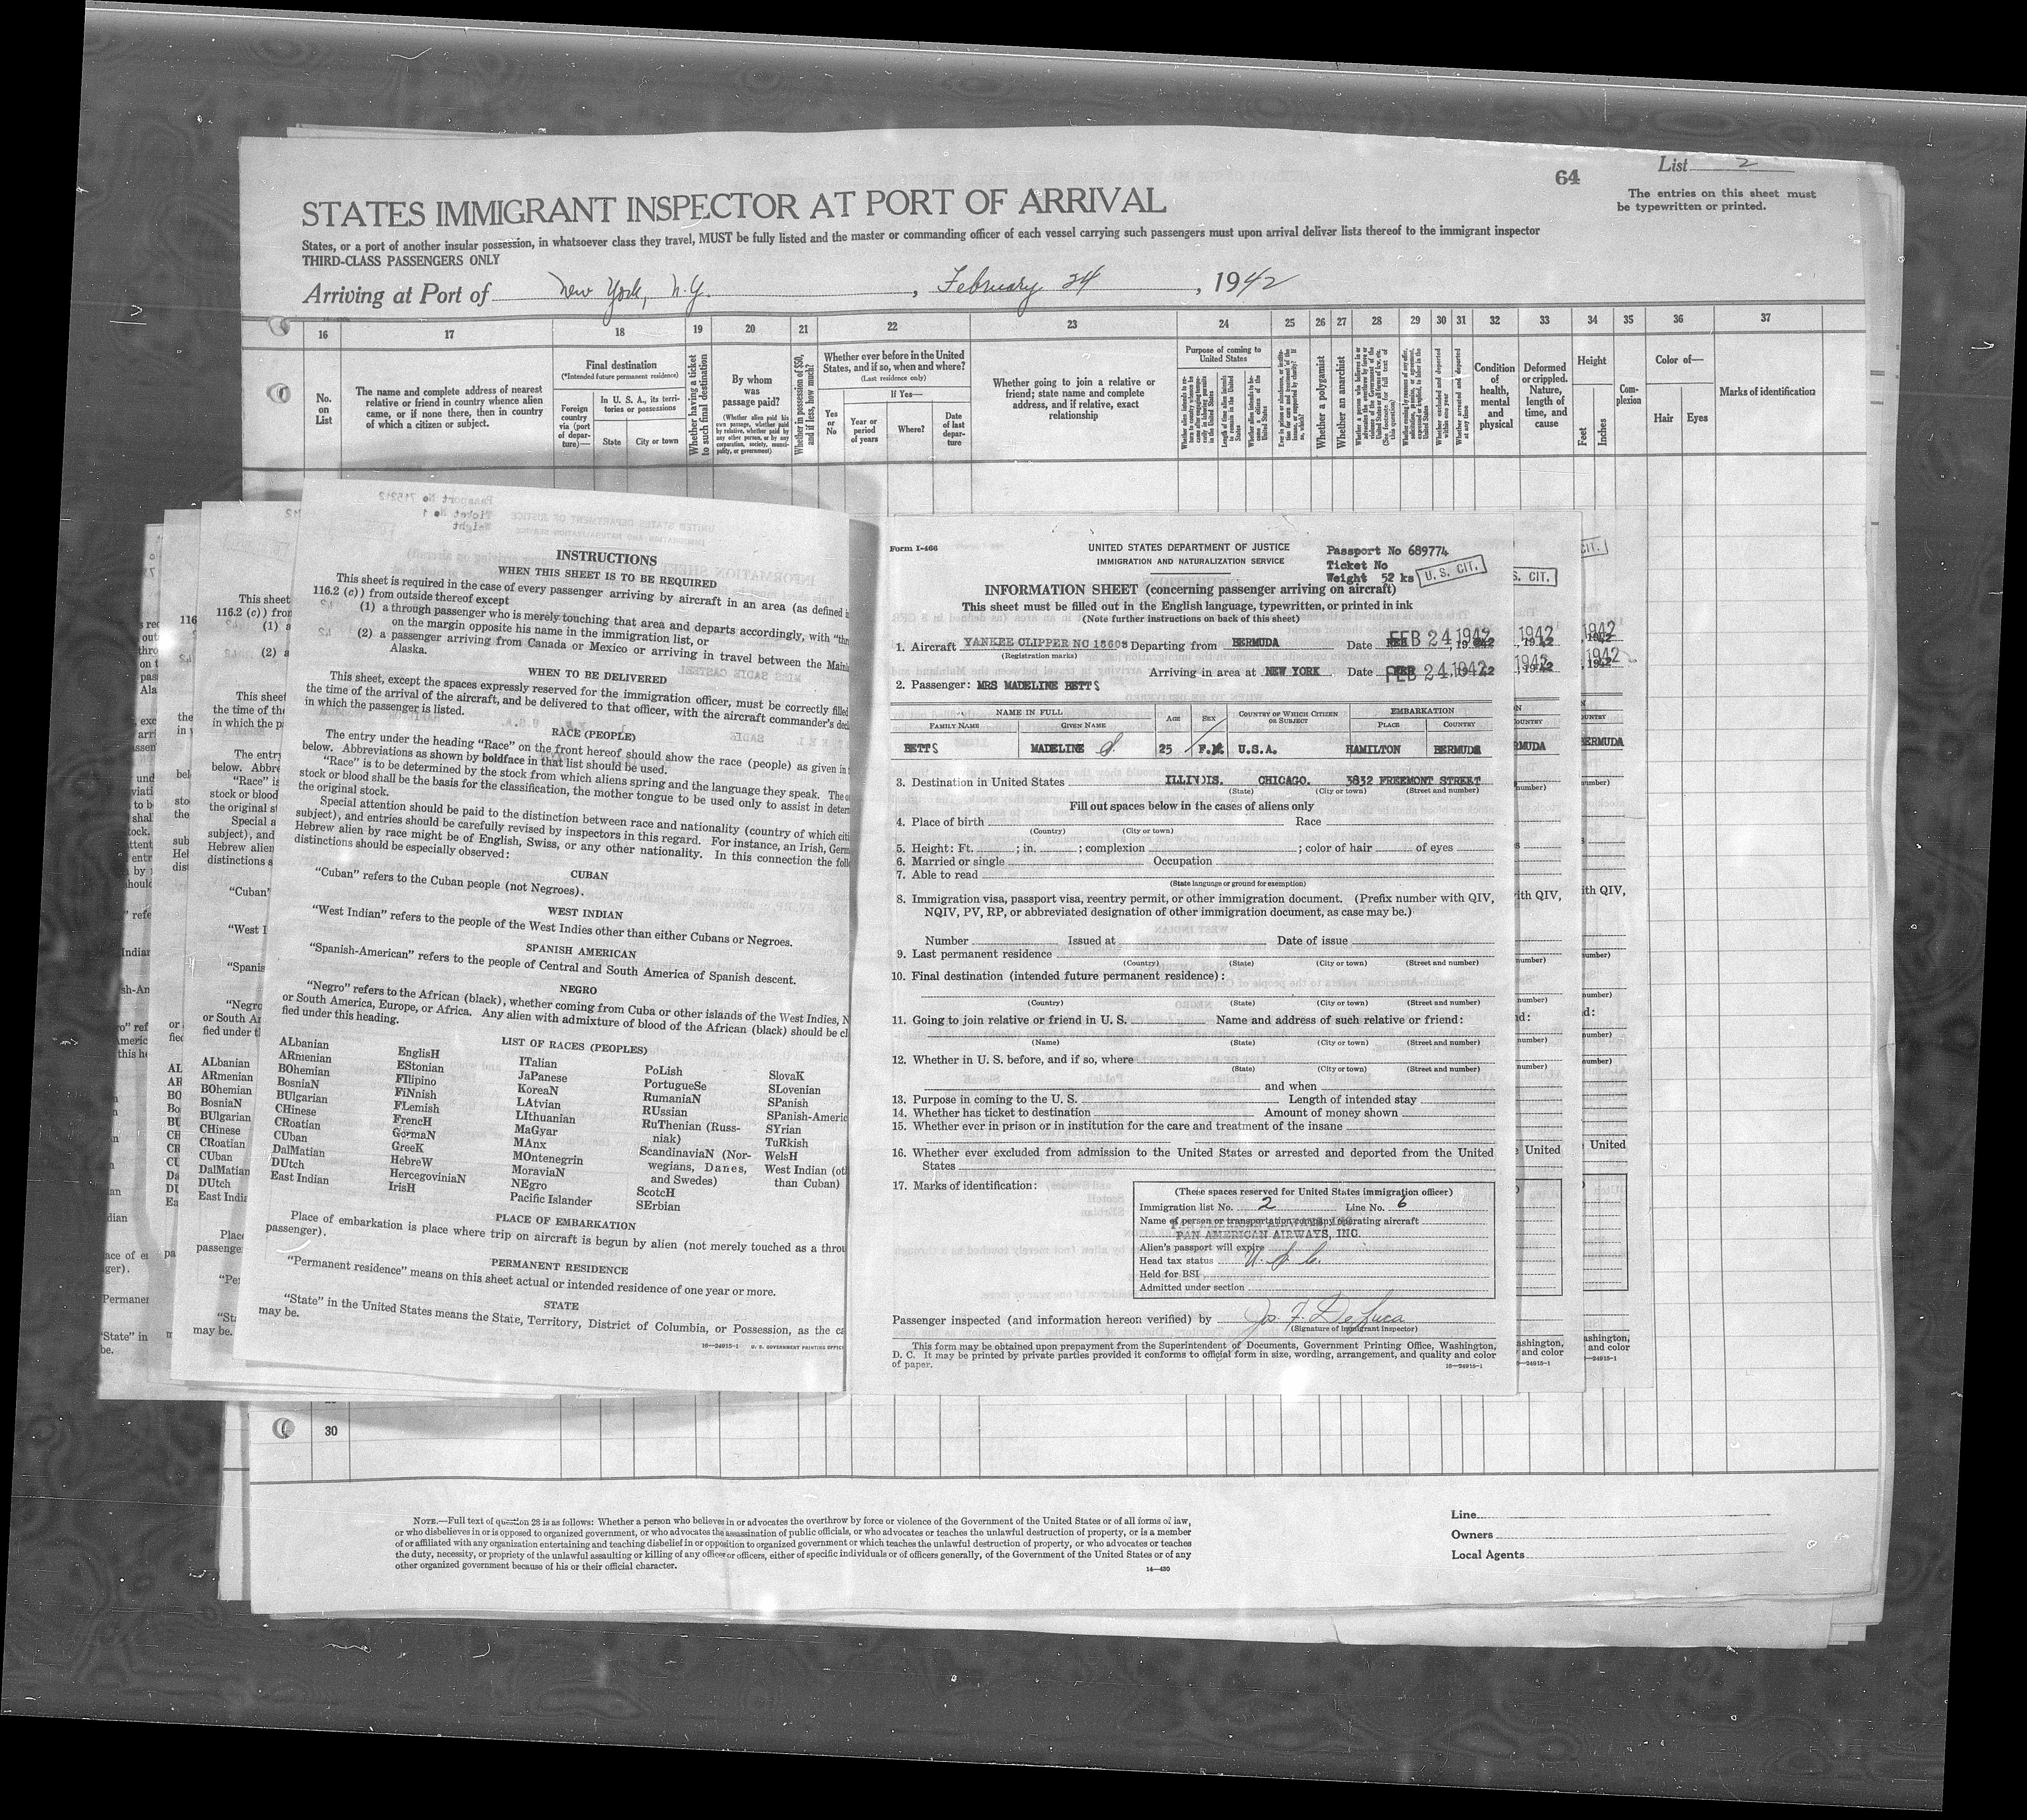 List 2
64
The entries on this sheet must
be typewritten or printed.
STATES IMMIGRANT INSPECTOR AT PORT OF ARRIVAL
States, or a port of another insular possession, in whatsoever class they travel, MUST be fully listed and the master or commanding officer of each vessel carrying such passengers must upon arrival deliver lists thereof to the immigrant inspector
THIRD-CLASS PASSENGERS ONLY
Arriving at Port of New York, N.Y. , February 24 , 1942
16 17 18 19 20 21 22 23 24 25 26 27 28 29 30 31 32 33 34 35 36 37
No. on List
The name and complete address of nearest
relative or friend in country whence alien
came, or if none there, then in country
of which a citizen or subject.
Final destination
(*Intended future permanent residence)
Foreign country via (port of departure)—
In U. S. A., its territories or possessions
State
City or town
Whether having a ticket to such final destination
By whom was passage paid?
(Whether alien paid his own passage, whether paid by relative, whether paid by any other person, or by any corporation, society, municipality, or government)
Whether in possession of $50, and if less, how much?
Whether ever before in the United
States, and if so, when and where?
(Last residence only)
Yes or No
If Yes—
Year or period of years
Where?
Date of last departure
Whether going to join a relative or
friend; state name and complete
address, and if relative, exact
relationship
Purpose of coming to United States
Whether a polygamist
Whether an anarchist
Condition of health, mental and physical
Deformed or crippled. Nature, length of time, and cause
Height
Feet
Inches
Complexion
Color of—
Hair
Eyes
Marks of identification
INSTRUCTIONS
WHEN THIS SHEET IS TO BE REQUIRED
This sheet is required in the case of every passenger arriving by aircraft in an area (as defined
116.2 (c)) from outside thereof except
(1) a through passenger who is merely touching that area and departs accordingly, with "thr
on the margin opposite his name in the immigration list, or
(2) a passenger arriving from Canada or Mexico or arriving in travel between the Main
Alaska.
WHEN TO BE DELIVERED
This sheet, except the spaces expressly reserved for the immigration officer, must be correctly filled
the time of the arrival of the aircraft, and be delivered to that officer, with the aircraft commander's
in which the passenger is listed.
RACE (PEOPLE)
The entry under the heading "Race" on the front hereof should show the race (people) as given in
below. Abbreviations as shown by boldface in that list should be used.
"Race" is to be determined by the stock from which aliens spring and the language they speak. The
stock or blood shall be the basis for the classification, the mother tongue to be used only to assist in deter
the original stock.
Special attention should be paid to the distinction between race and nationality (country of which citi
subject), and entries should be carefully revised by inspectors in this regard. For instance, an Irish, Germ
Hebrew alien by race might be of English, Swiss, or any other nationality. In this connection the foll
distinctions should be especially observed:
CUBAN
"Cuban" refers to the Cuban people (not Negroes).
WEST INDIAN
"West Indian" refers to the people of the West Indies other than either Cubans or Negroes.
SPANISH AMERICAN
"Spanish-American" refers to the people of Central and South America of Spanish descent.
NEGRO
"Negro" refers to the African (black), whether coming from Cuba or other islands of the West Indies, N
or South America, Europe, or Africa. Any alien with admixture of blood of the African (black) should be cl
fied under this heading.
LIST OF RACES (PEOPLES)
ALbanian
ARmenian
BOhemian
BosniaN
BUlgarian
CHinese
CRoatian
CUban
DalMatian
DUtch
East Indian
EnglisH
EStonian
FIlipino
FiNnish
FLemish
FrencH
GermaN
GreeK
HebreW
HercegoviniaN
IrisH
ITalian
JaPanese
KoreaN
LAtvian
LIthuanian
MaGyar
MAnx
MOntenegrin
MoraviaN
NEgro
Pacific Islander
PoLish
PortugueSe
RumaniaN
RUssian
RuThenian (Russ-
niak)
ScandinaviaN (Nor-
wegians, Danes,
and Swedes)
ScotcH
SErbian
SlovaK
SLovenian
SPanish
SPanish-Americ
SYrian
TuRkish
WelsH
West Indian (oth
than Cuban)
PLACE OF EMBARKATION
Place of embarkation is place where trip on aircraft is begun by alien (not merely touched as a throu
passenger).
PERMANENT RESIDENCE
"Permanent residence" means on this sheet actual or intended residence of one year or more.
STATE
"State" in the United States means the State, Territory, District of Columbia, or Possession, as the ca
may be.
16—24915-1 U. S. GOVERNMENT PRINTING OFFIC
Form I-466
UNITED STATES DEPARTMENT OF JUSTICE
IMMIGRATION AND NATURALIZATION SERVICE
Passport No 689774
Ticket No
Weight 52 ks
U. S. CIT.
INFORMATION SHEET (concerning passenger arriving on aircraft)
This sheet must be filled out in the English language, typewritten, or printed in ink
(Note further instructions on back of this sheet)
1. Aircraft YANKEE CLIPPER NC 18603 Departing from BERMUDA Date FEB 24 1942
(Registration marks)
Arriving in area at NEW YORK Date FEB 24 1942
2. Passenger: MRS MADELINE BETTS
NAME IN FULL
FAMILY NAME GIVEN NAME
AGE SEX
COUNTRY OF WHICH CITIZEN OR SUBJECT
EMBARKATION
PLACE COUNTRY
BETTS MADELINE S. 25 F. U.S.A. HAMILTON BERMUDA
3. Destination in United States ILLINOIS. CHICAGO. 3832 FREEMONT STREET
(State) (City or town) (Street and number)
Fill out spaces below in the cases of aliens only
4. Place of birth Race
(Country) (City or town)
5. Height: Ft. ; in. ; complexion ; color of hair of eyes
6. Married or single Occupation
7. Able to read
(State language or ground for exemption)
8. Immigration visa, passport visa, reentry permit, or other immigration document. (Prefix number with QIV,
NQIV, PV, RP, or abbreviated designation of other immigration document, as case may be.)
Number Issued at Date of issue
9. Last permanent residence
(Country) (State) (City or town) (Street and number)
10. Final destination (intended future permanent residence):
(Country) (State) (City or town) (Street and number)
11. Going to join relative or friend in U. S. Name and address of such relative or friend:
(Name) (State) (City or town) (Street and number)
12. Whether in U. S. before, and if so, where
(State) (City or town) (Street and number)
and when
13. Purpose in coming to the U. S. Length of intended stay
14. Whether has ticket to destination Amount of money shown
15. Whether ever in prison or in institution for the care and treatment of the insane
16. Whether ever excluded from admission to the United States or arrested and deported from the United
States
17. Marks of identification:
(These spaces reserved for United States immigration officer)
Immigration list No. 2 Line No. 6
Name of person or transportation company operating aircraft
PAN AMERICAN AIRWAYS, INC.
Alien's passport will expire
Head tax status U.S.C.
Held for BSI
Admitted under section
Passenger inspected (and information hereon verified) by Jos. F. DeLuca
(Signature of immigrant inspector)
This form may be obtained upon prepayment from the Superintendent of Documents, Government Printing Office, Washington,
D. C. It may be printed by private parties provided it conforms to official form in size, wording, arrangement, and quality and color
of paper. 16—24915-1
30
NOTE.—Full text of question 28 is as follows: Whether a person who believes in or advocates the overthrow by force or violence of the Government of the United States or of all forms of law,
or who disbelieves in or is opposed to organized government, or who advocates the assassination of public officials, or who advocates or teaches the unlawful destruction of property, or is a member
of or affiliated with any organization entertaining and teaching disbelief in or opposition to organized government or which teaches the unlawful destruction of property, or who advocates or teaches
the duty, necessity, or propriety of the unlawful assaulting or killing of any officer or officers, either of specific individuals or of officers generally, of the Government of the United States or of any
other organized government because of his or their official character.
14—430
Line
Owners
Local Agents